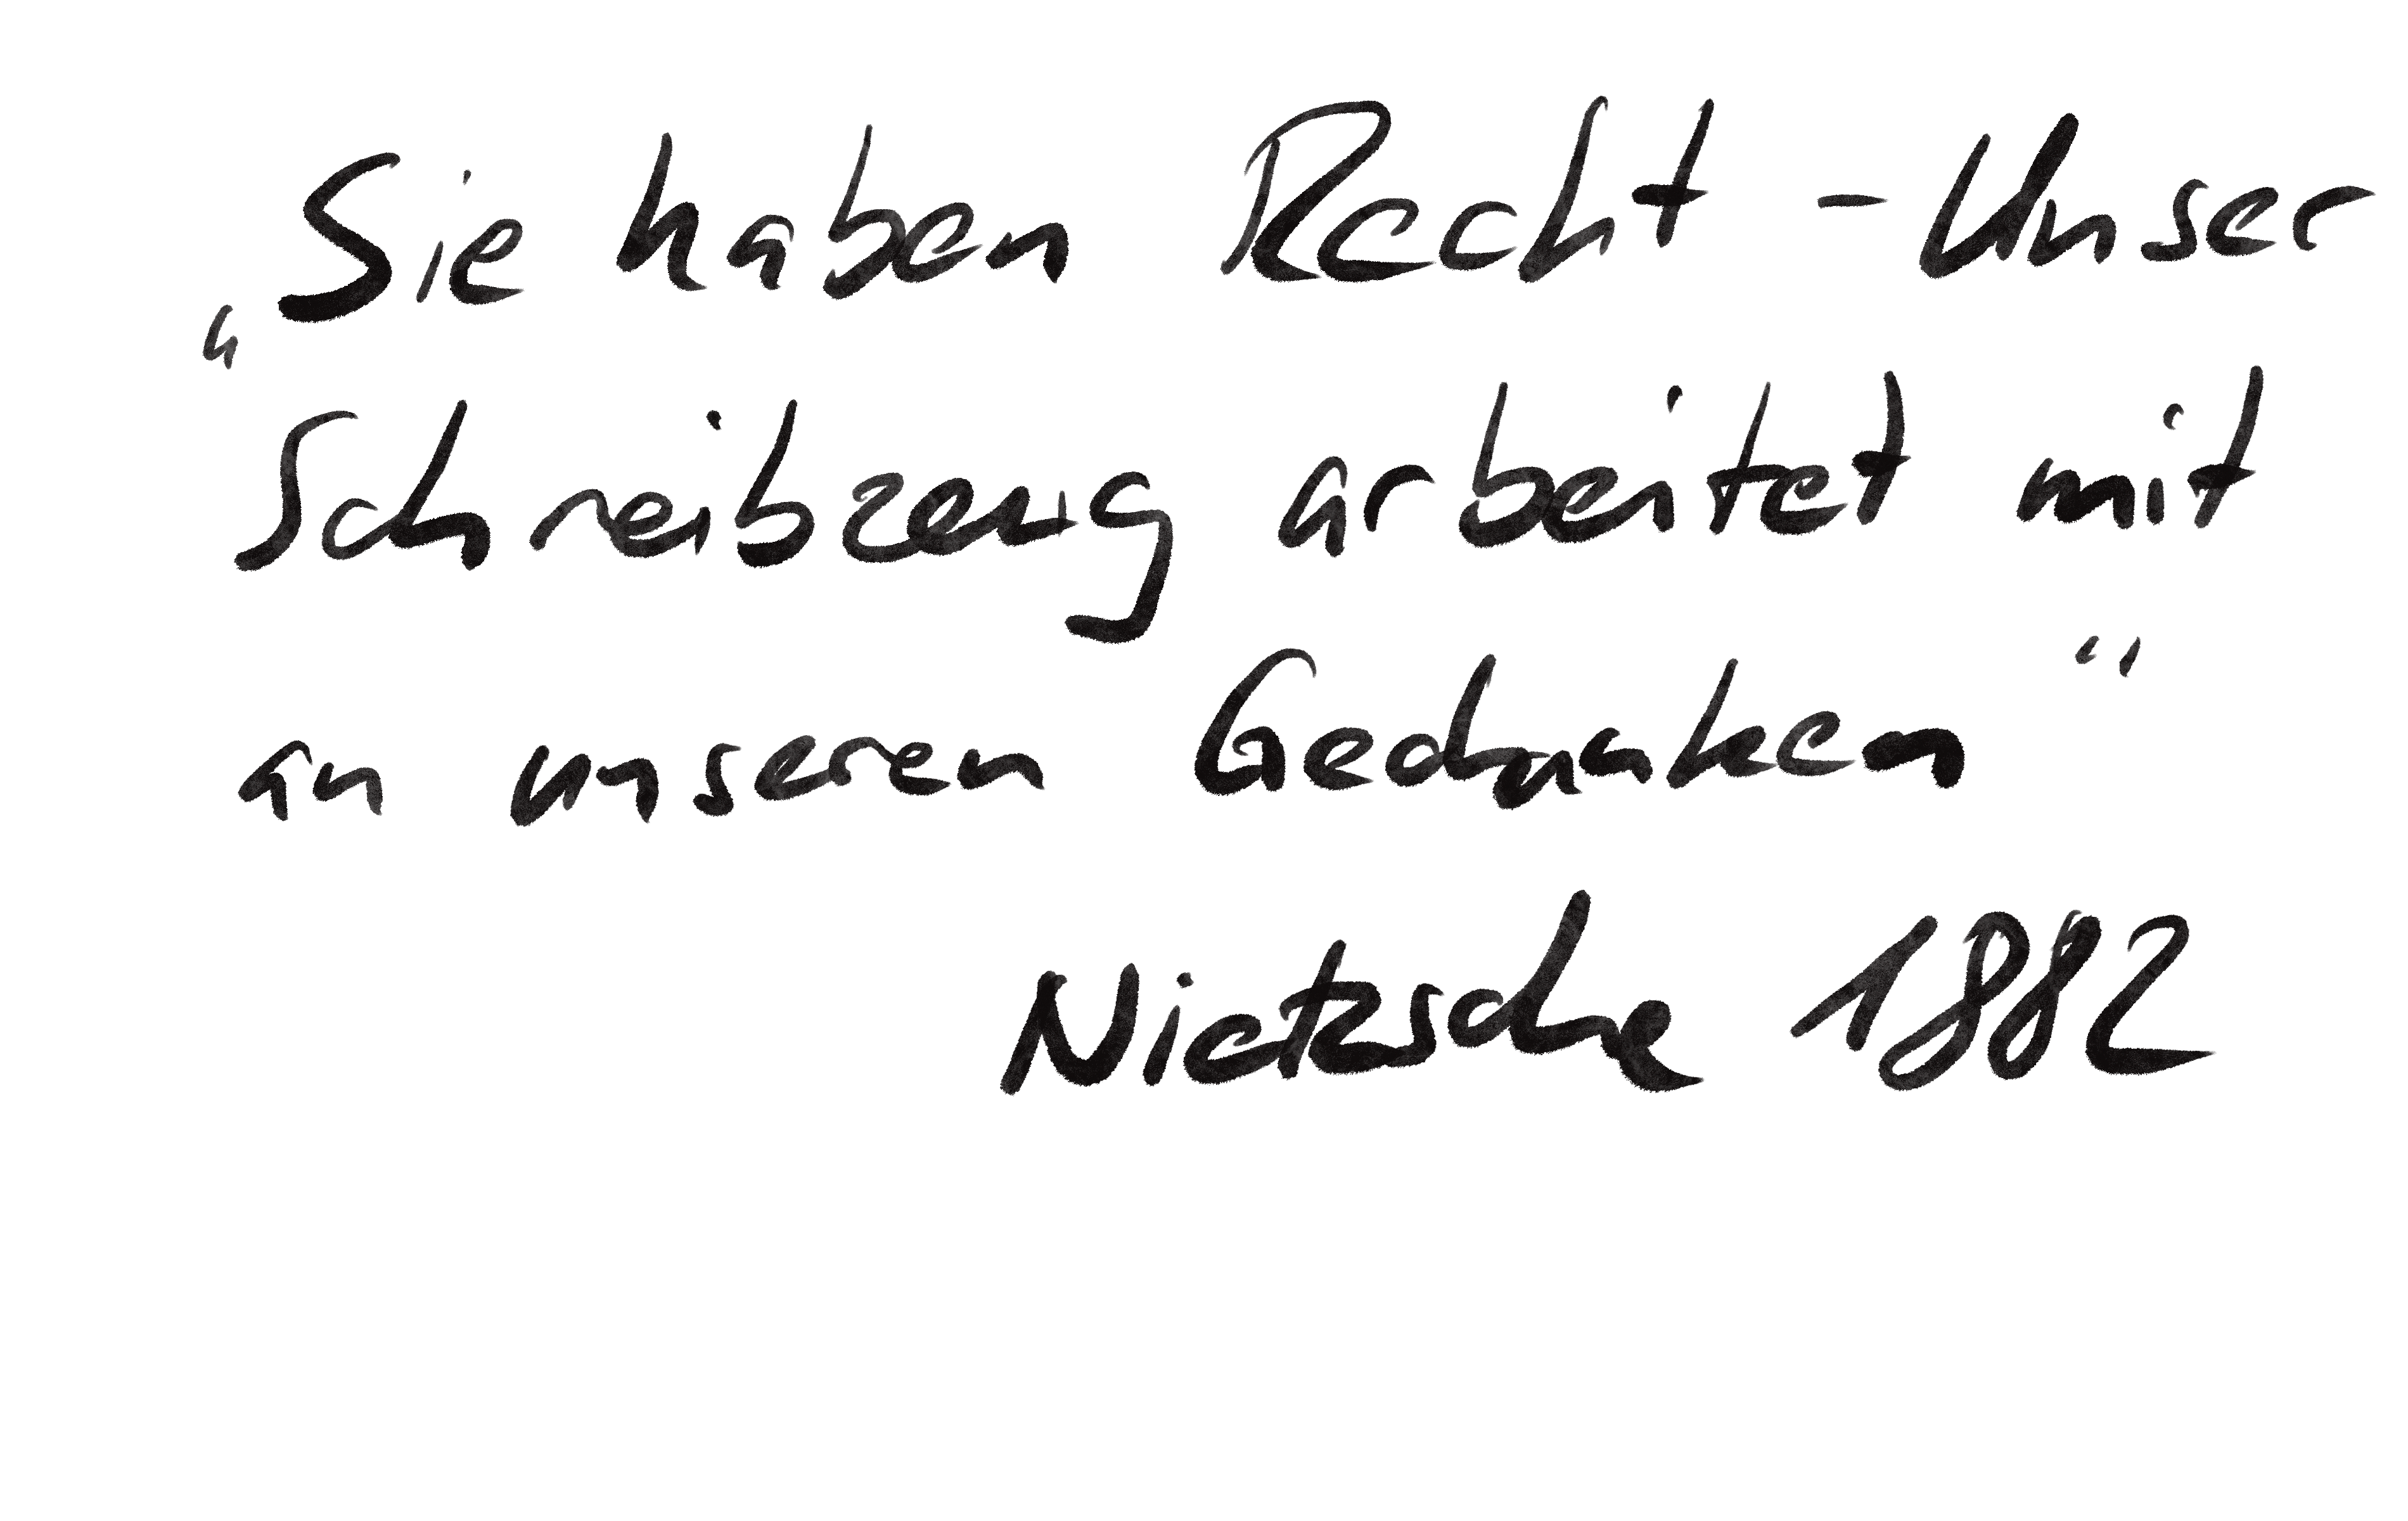 „Sie haben Recht - Unser
Schreibzeug arbeitet mit
an unseren Gedanken“
Nietzsche 1882